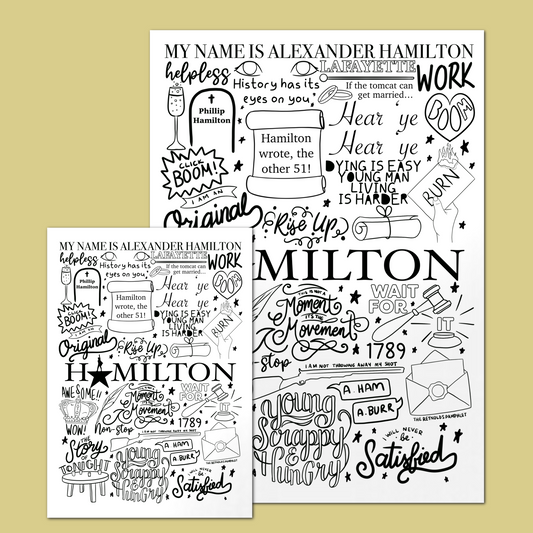 MY NAME IS ALEXANDER HAMILTON
helpless
History has its
eyes on you
LAFAYETTE
If the tomcat can
get married...
WORK
Phillip
Hamilton
Hamilton
wrote, the
other 51!
Hear ye
Hear ye
BOOM
CLICK
BOOM!
DYING IS EASY
YOUNG MAN
LIVING
IS HARDER
BURN
I AM AN
Original
Rise Up
MILTON
THIS IS NOT A
Moment
IT'S THE
Movement
WAIT
FOR
IT
1789
stop
I AM NOT THROWING AWAY MY SHOT
A. HAM
A. BURR
THE REYNOLDS PAMPHLET
Young
Scrappy
&
Hungry
I WILL NEVER
be
Satisfied
MY NAME IS ALEXANDER HAMILTON
helpless
History has its
eyes on you
LAFAYETTE
If the tomcat can
get married...
WORK
Phillip
Hamilton
Hamilton
wrote, the
other 51!
Hear ye
Hear ye
BOOM
CLICK
BOOM!
DYING IS EASY
YOUNG MAN
LIVING
IS HARDER
BURN
I AM AN
Original
Rise Up
HAMILTON
AWESOME!!
WOW!
THIS IS NOT A
Moment
IT'S THE
Movement
WAIT
FOR
IT
1789
Non-stop
I AM NOT THROWING AWAY MY SHOT
The
Story
OF
TONIGHT
A. HAM
A. BURR
THE REYNOLDS PAMPHLET
Young
Scrappy
&
Hungry
I WILL NEVER
be
Satisfied